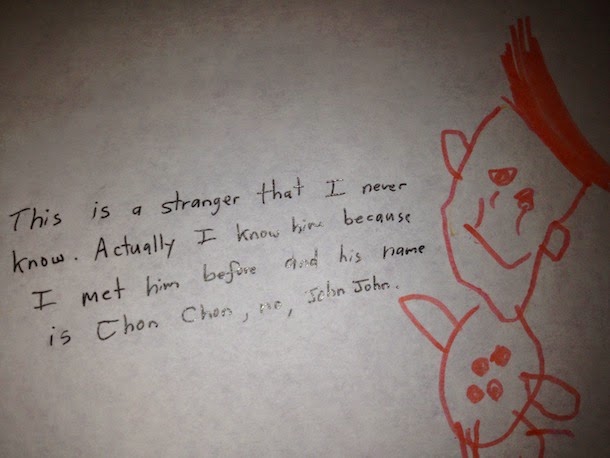 This is a stranger that I never
know. Actually I know him because
I met him before and his name
is Chon Chon, no, John John.